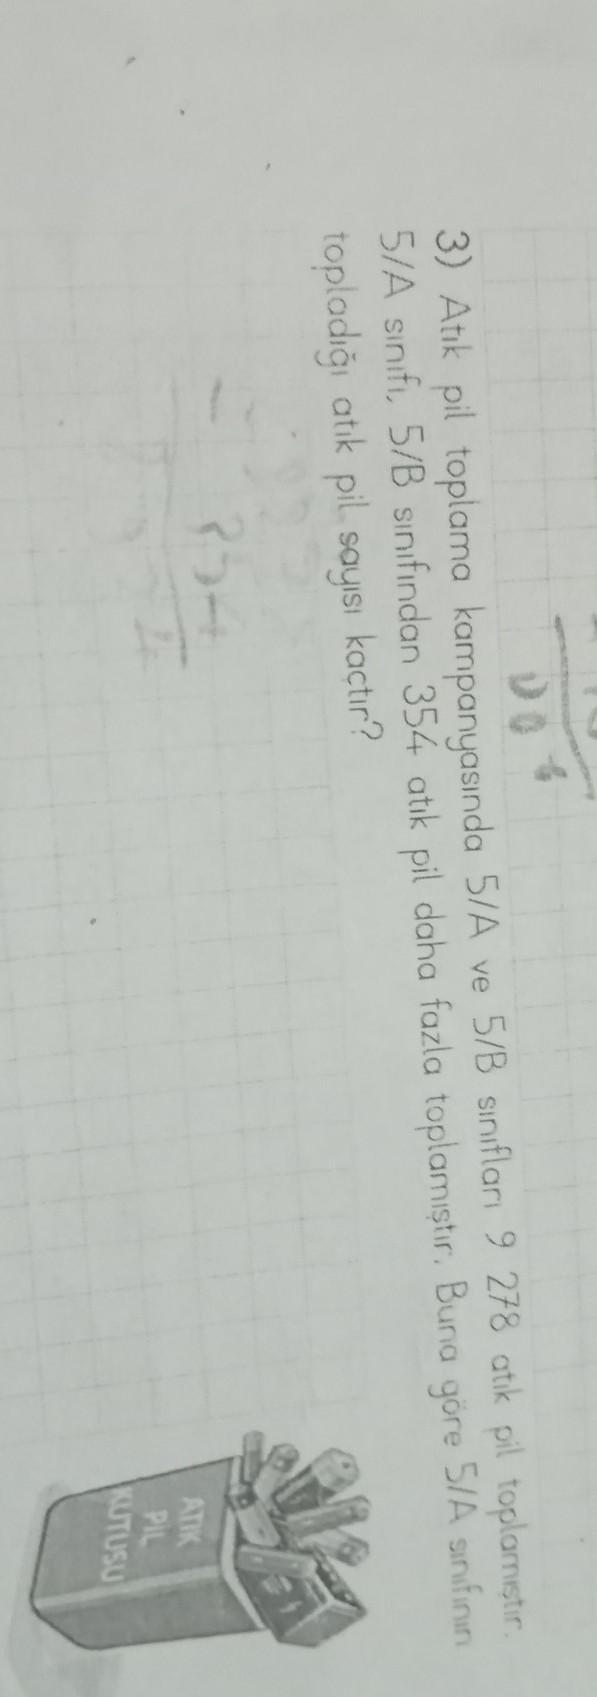 3) Atık pil toplama kampanyasında 5/A ve 5/B sınıfları 9 278 atık pil toplamıştır.
5/A sınıfı, 5/B sınıfından 354 atık pil daha fazla toplamıştır. Buna göre 5/A sınıfının
topladığı atık pil sayısı kaçtır?
ATIK
PİL
KUTUSU